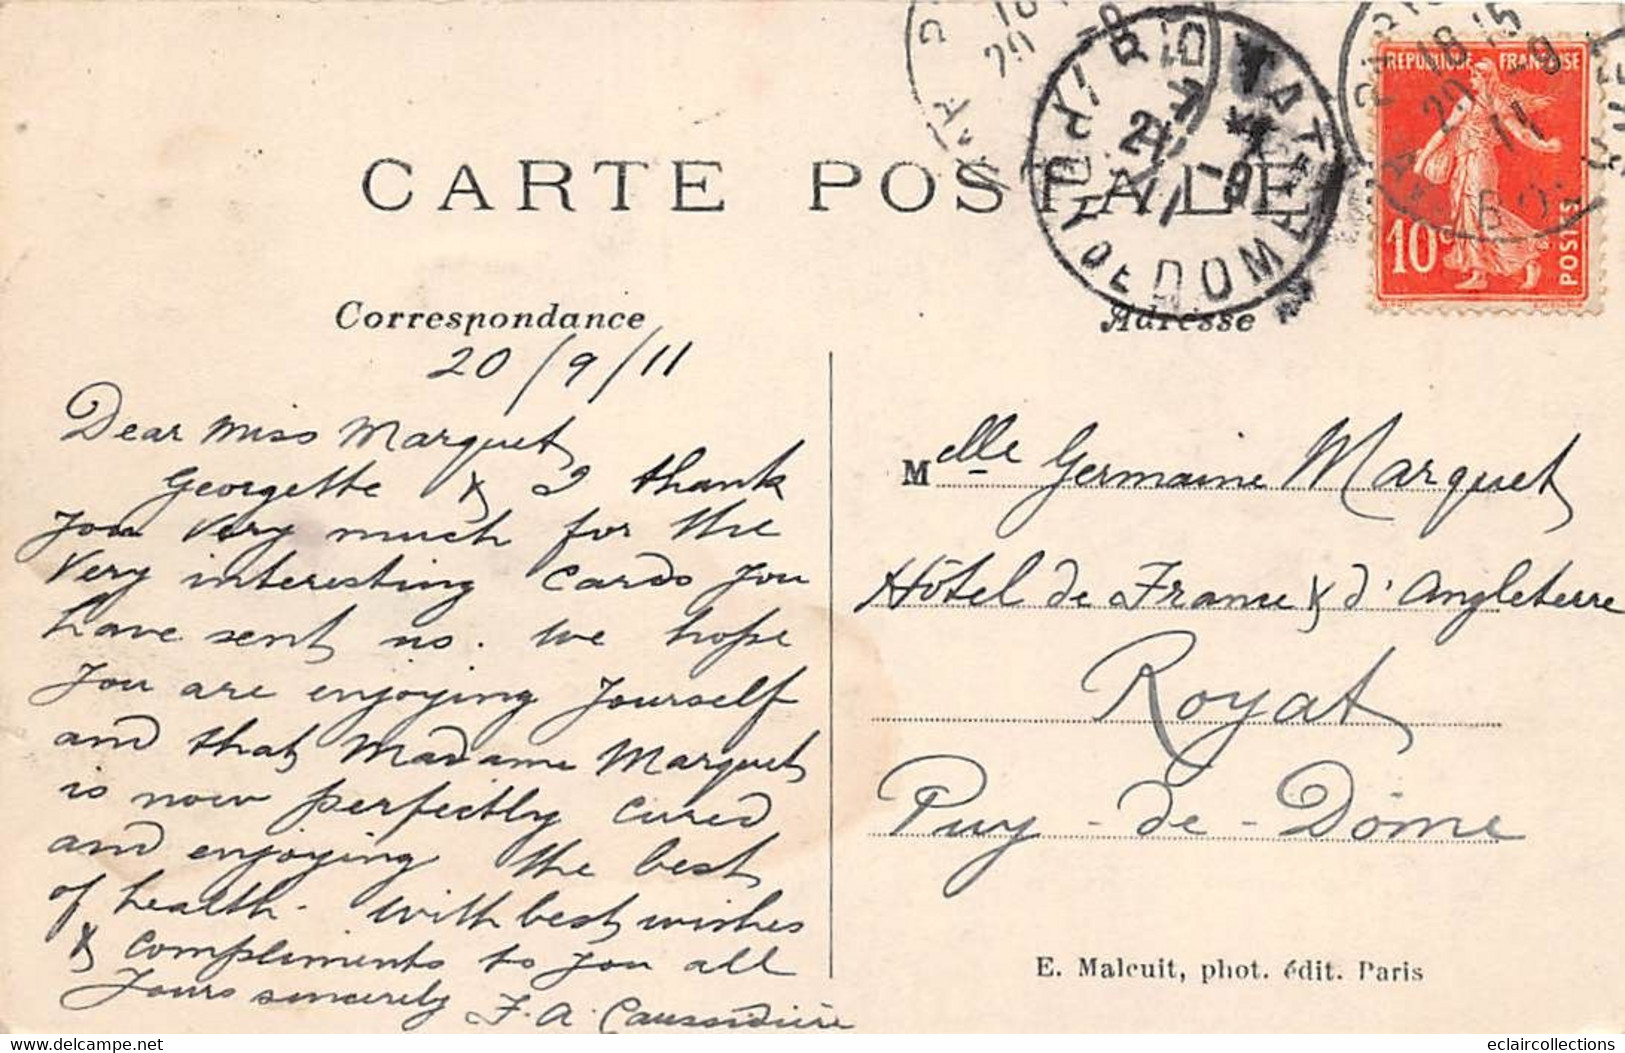 CARTE POSTALE
REPUBLIQUE FRANÇAISE
10c
POSTES
PUY DE DOME
Correspondance
Adresse
20/9/11
Dear Miss Marquet
Georgette & I thank
you very much for the
very interesting cards you
have sent us. We hope
you are enjoying yourself
and that Madame Marquet
is now perfectly cured
and enjoying the best
of health. With best wishes
& compliments to you all
Yours sincerely F. A. Caussidière
Melle Germaine Marquet
Hôtel de France & d'Angleterre
Royat
Puy-de-Dôme
E. Malcuit, phot. édit. Paris
eclaircollections